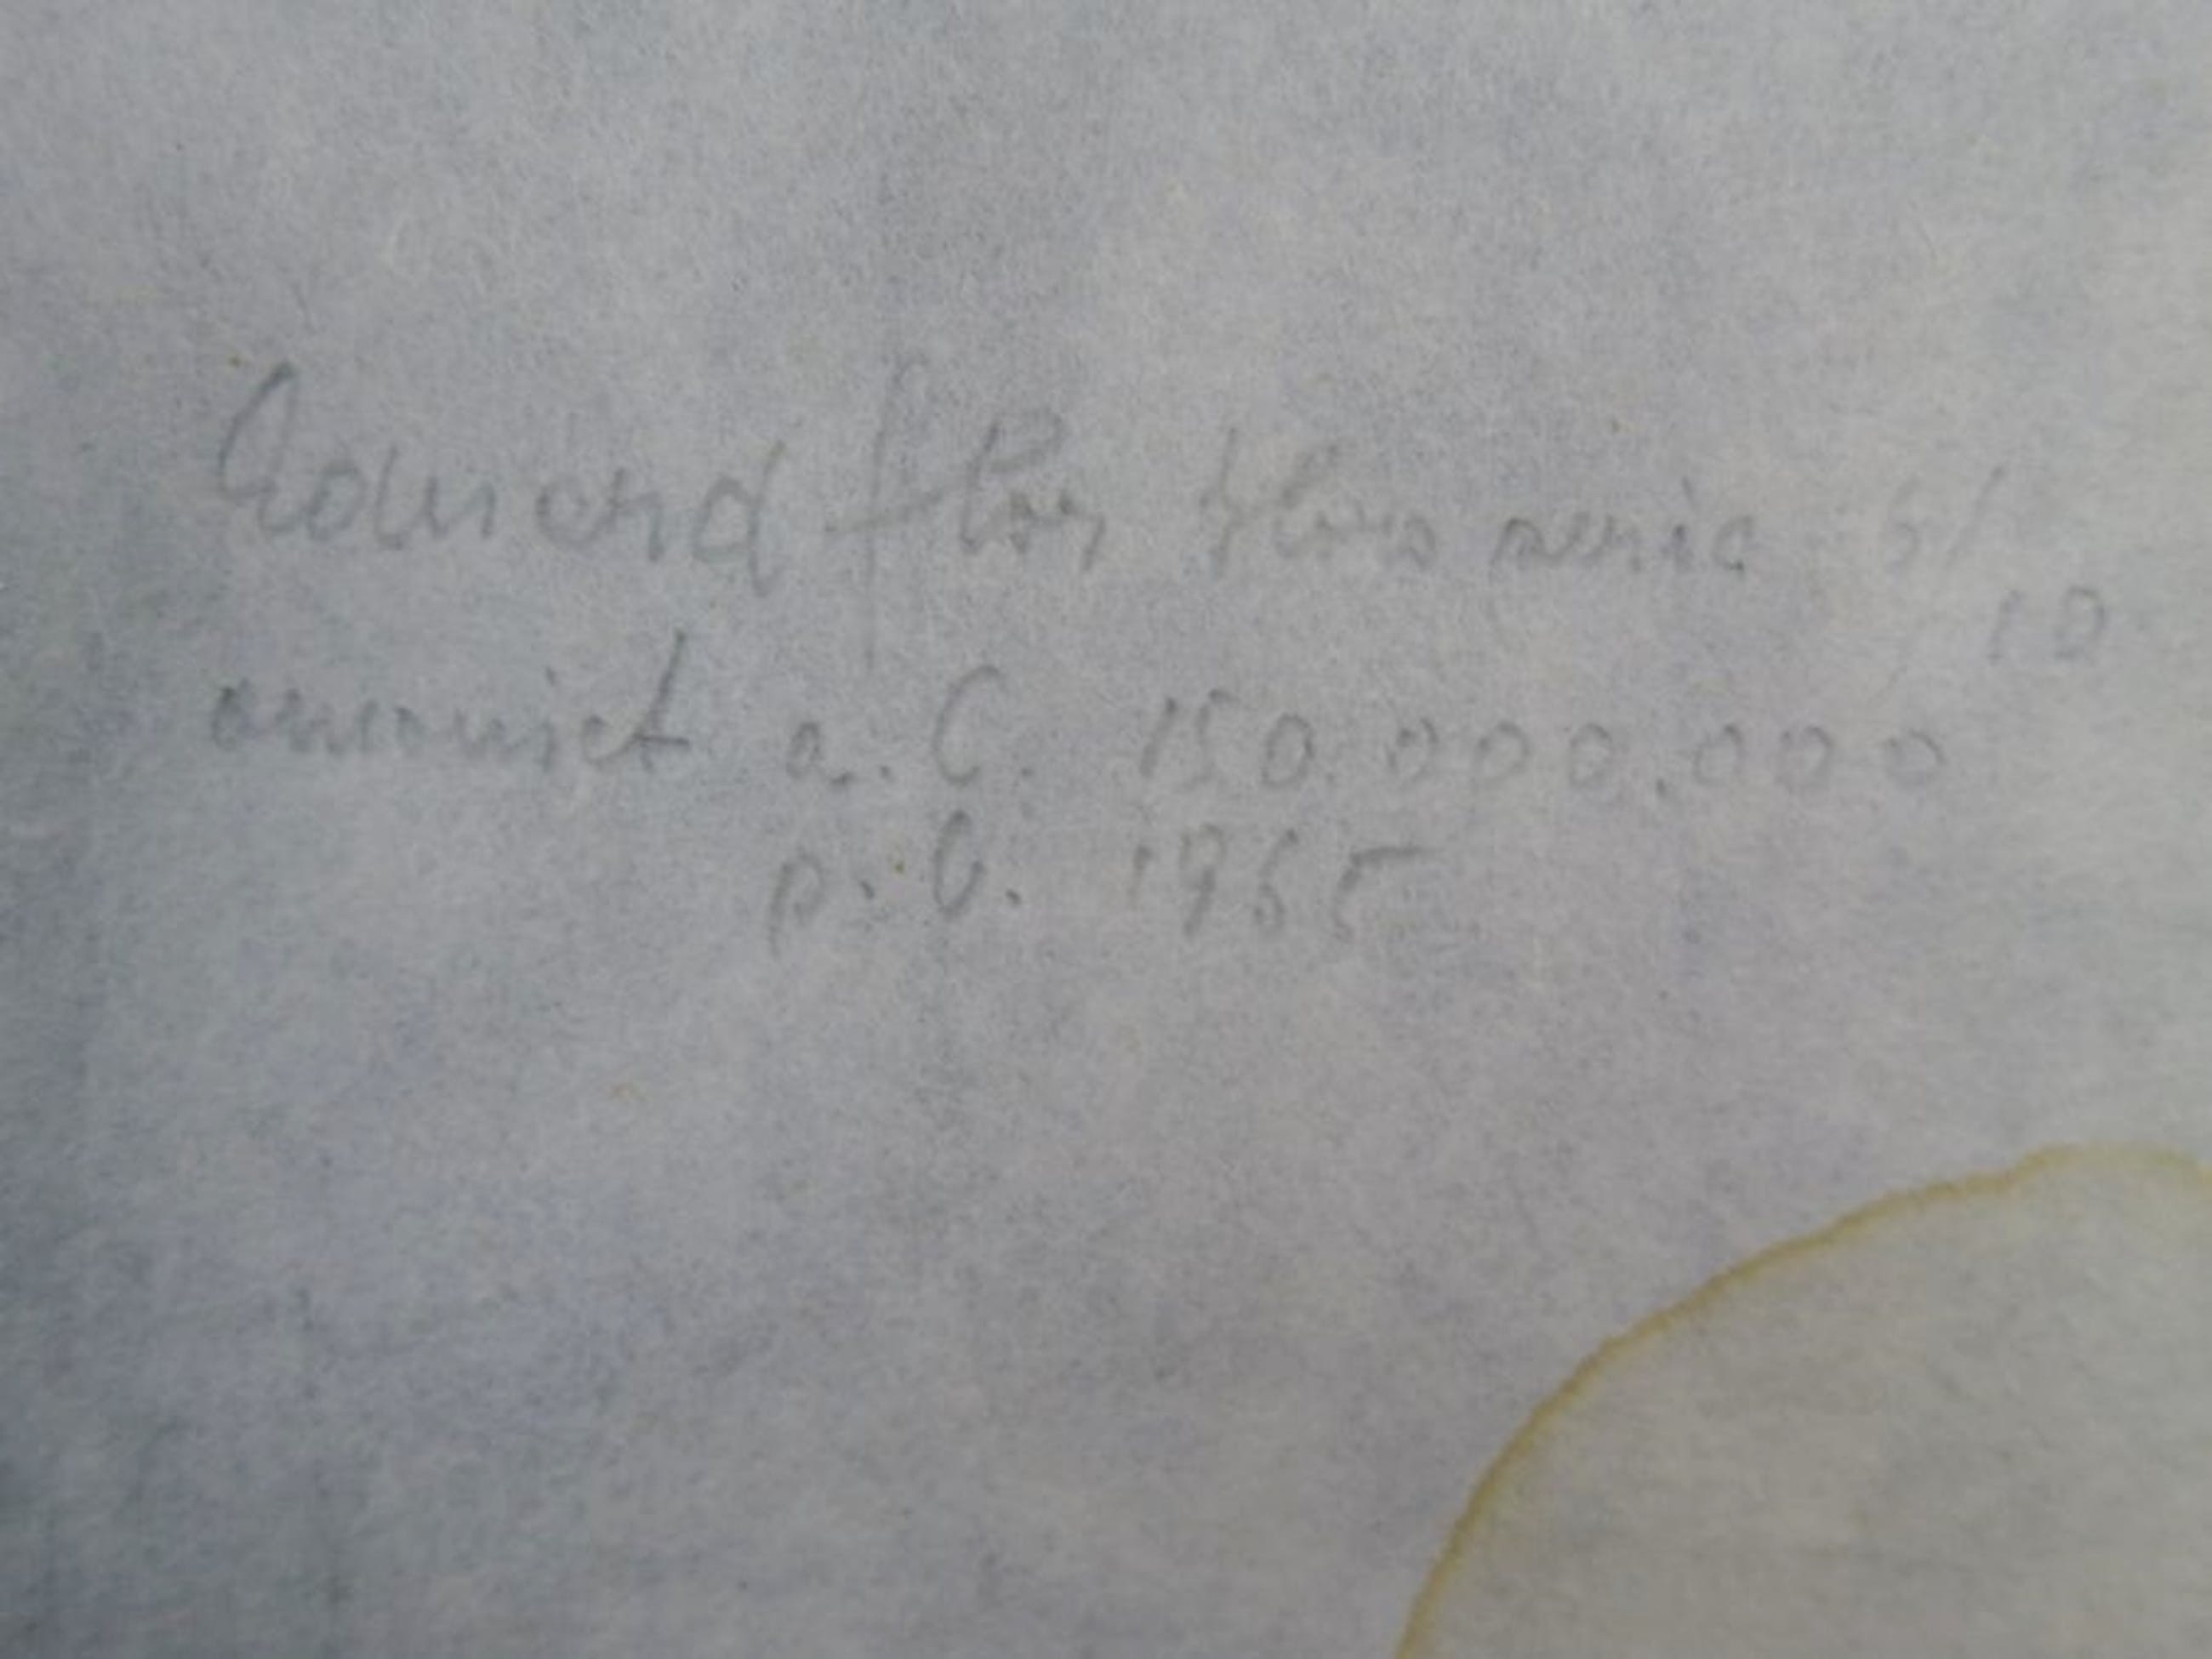 Edward flor flora serie 6/
10
ammoniet a. C. 150.000.000
p. C. 1965